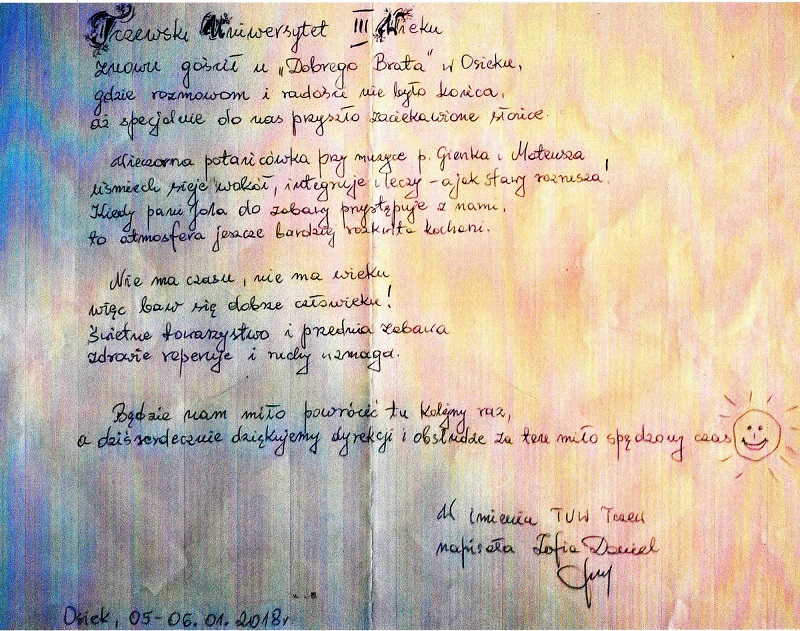 Tczewski Uniwersytet III Wieku
znowu gościł u „Dobrego Brata" w Osieku,
gdzie rozmowom i radości nie było końca,
aż specjalnie do nas przyszło zaciekawione słońce.
Wieczorna potańcówka przy muzyce p. Gienka i Mateusza
uśmiech sieje wokół, integruje i leczy - a jak stawy rozrusza!
Kiedy pani Jola do zabawy przystępuje z nami,
to atmosfera jeszcze bardziej rozkwita kochani.
Nie ma czasu, nie ma wieku
więc baw się dobrze człowieku!
Świetne towarzystwo i przednia zabawa
zdrowie reperuje i ruchy wzmaga.
Będzie nam miło powrócić tu kolejny raz,
a dziś serdecznie dziękujemy dyrekcji i obsłudze za ten miło spędzony czas
W imieniu TUW Tczew
napisała Zofia Daniel
Osiek, 05-06.01.2018r